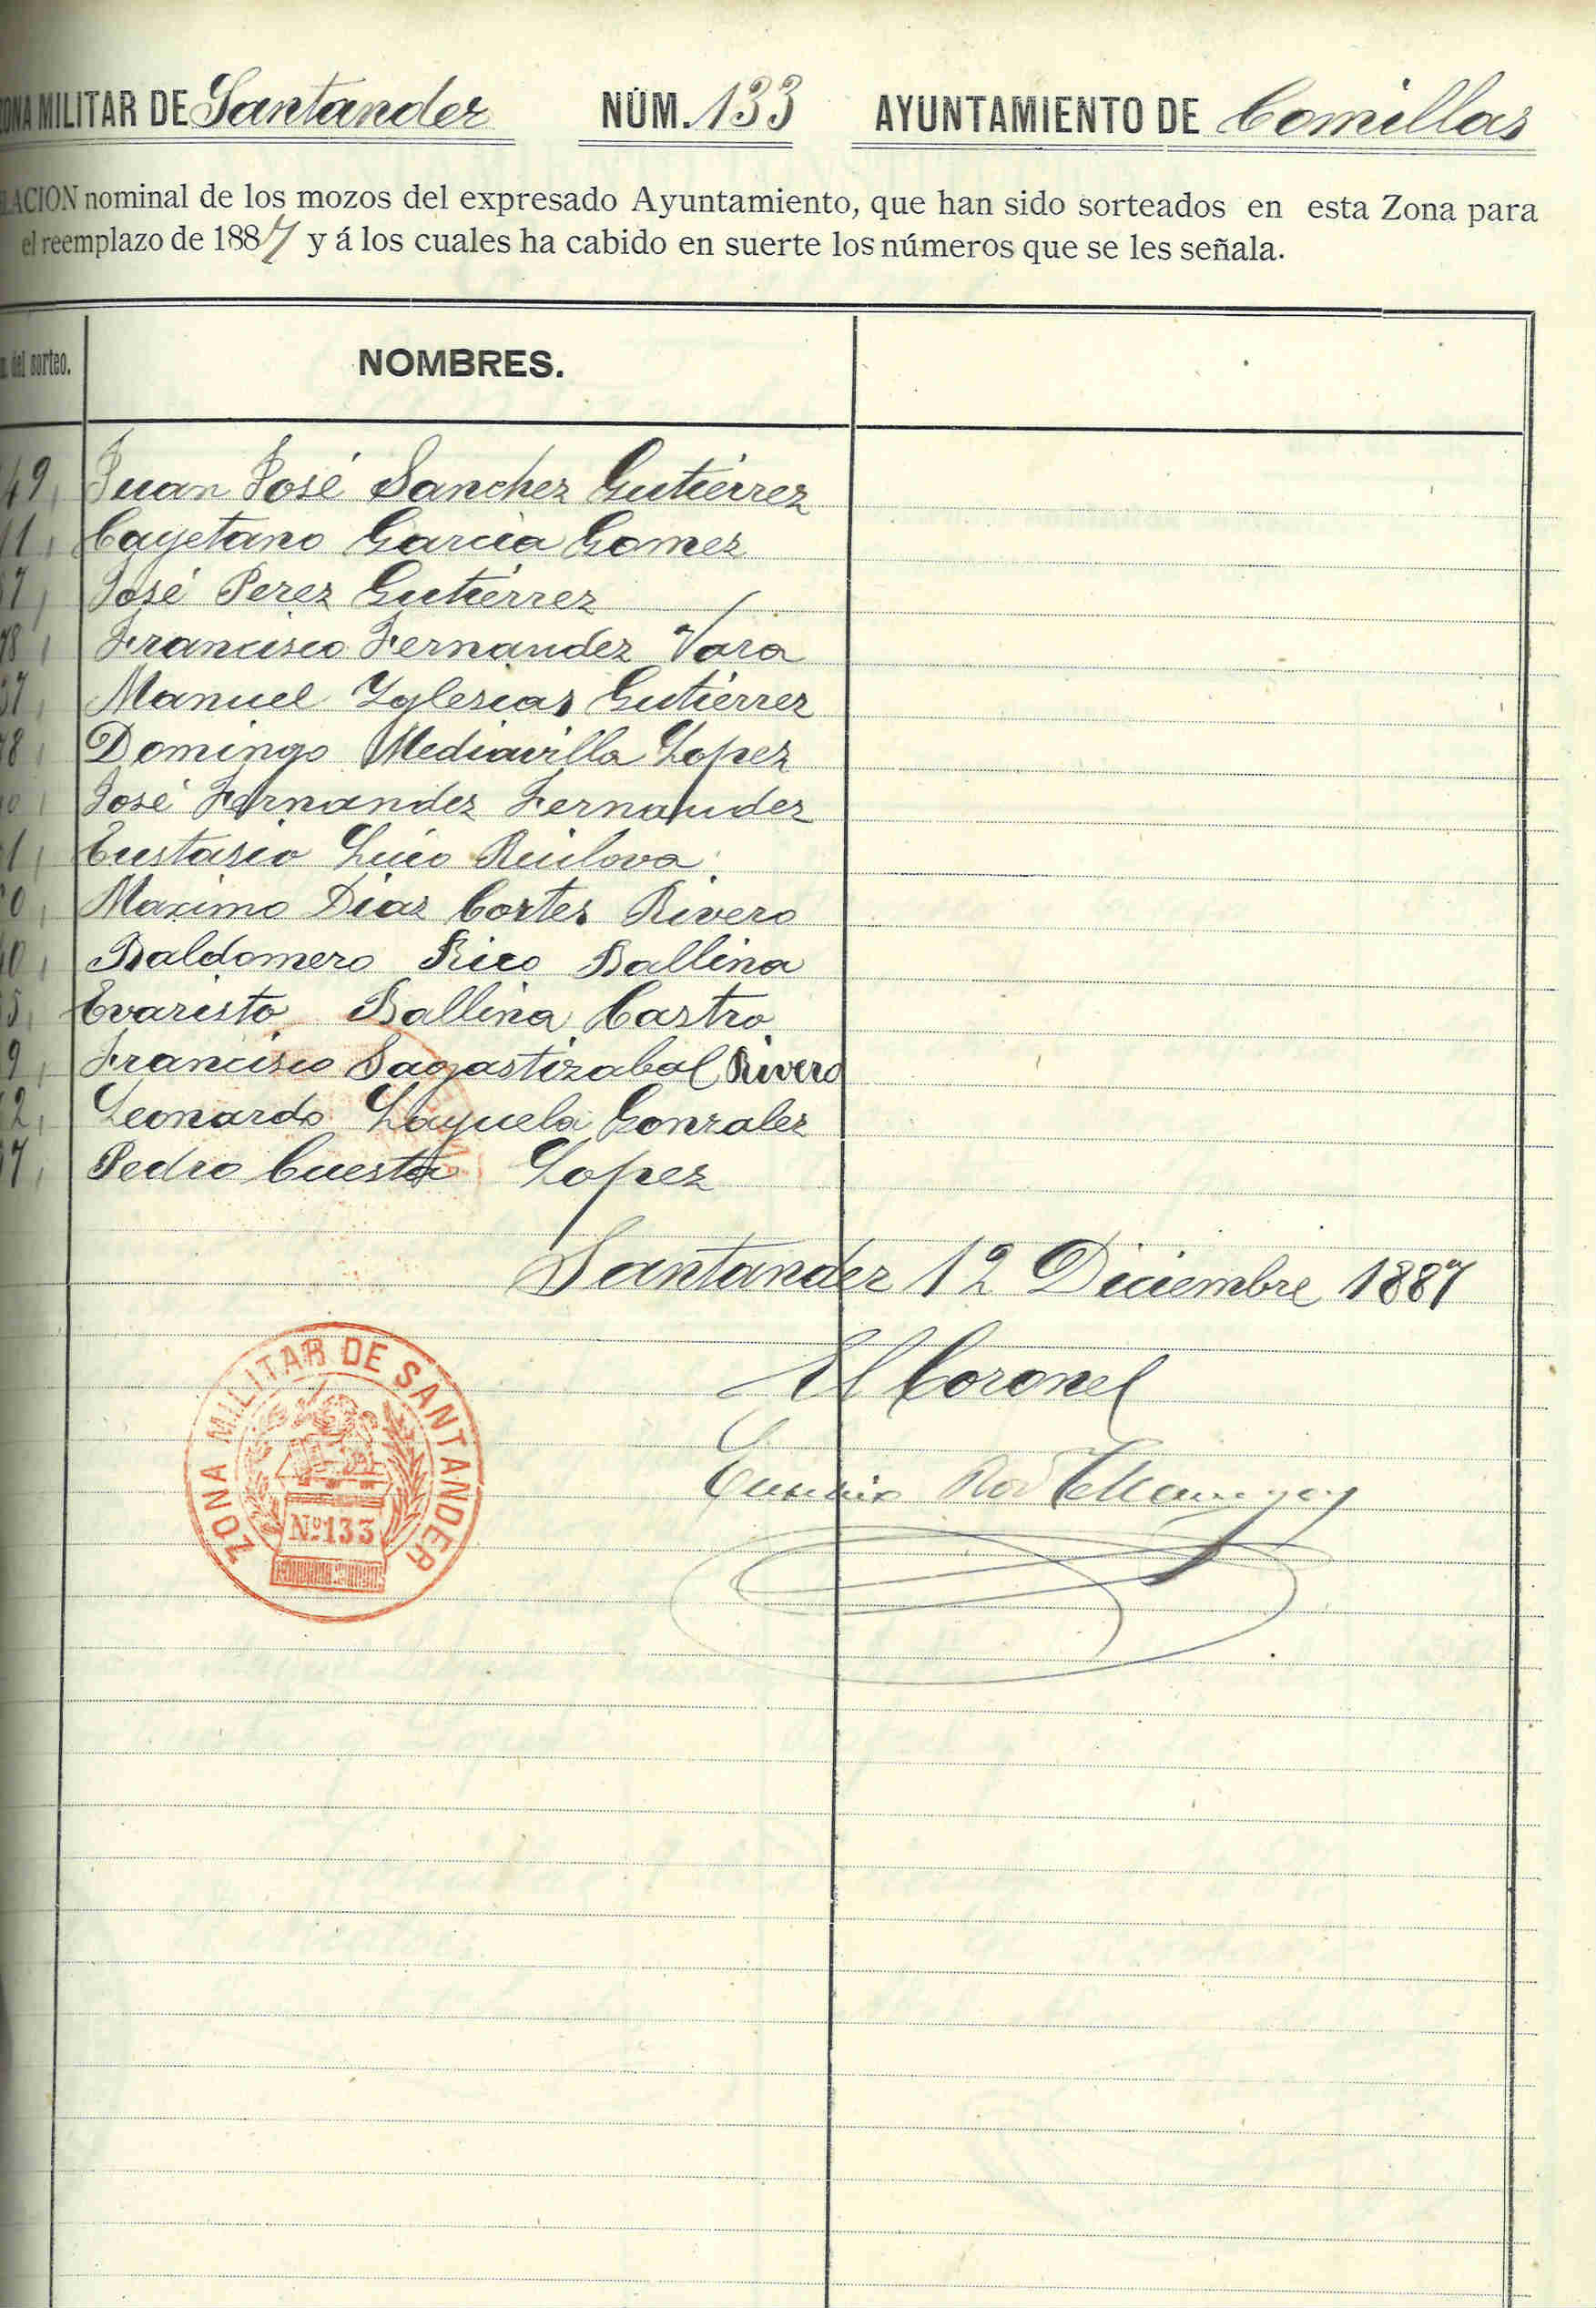 ZONA MILITAR DE Santander NÚM. 133 AYUNTAMIENTO DE Comillas
RELACION nominal de los mozos del expresado Ayuntamiento, que han sido sorteados en esta Zona para
el reemplazo de 1887 y á los cuales ha cabido en suerte los números que se les señala.
del sorteo. NOMBRES.
49, Juan José Sanchez Gutiérrez
11, Cayetano Garcia Gomez
57, José Perez Gutiérrez
78, Francisco Fernandez Vara
37, Manuel Yglesias Gutiérrez
78, Domingo Mediavilla Lopez
0, José Fernandez Fernandez
1, Eustasio Lucio Ruilova
0, Maximo Diaz Cortes Rivero
0, Baldomero Rico Ballina
5, Evaristo Ballina Castro
9, Francisco Sagastizabal Rivero
2, Leonardo Layuela Gonzalez
7, Pedro Cuesta Lopez
Santander 12 Diciembre 1887
El Coronel
Eusebio
ZONA MILITAR DE SANTANDER
Nº 133